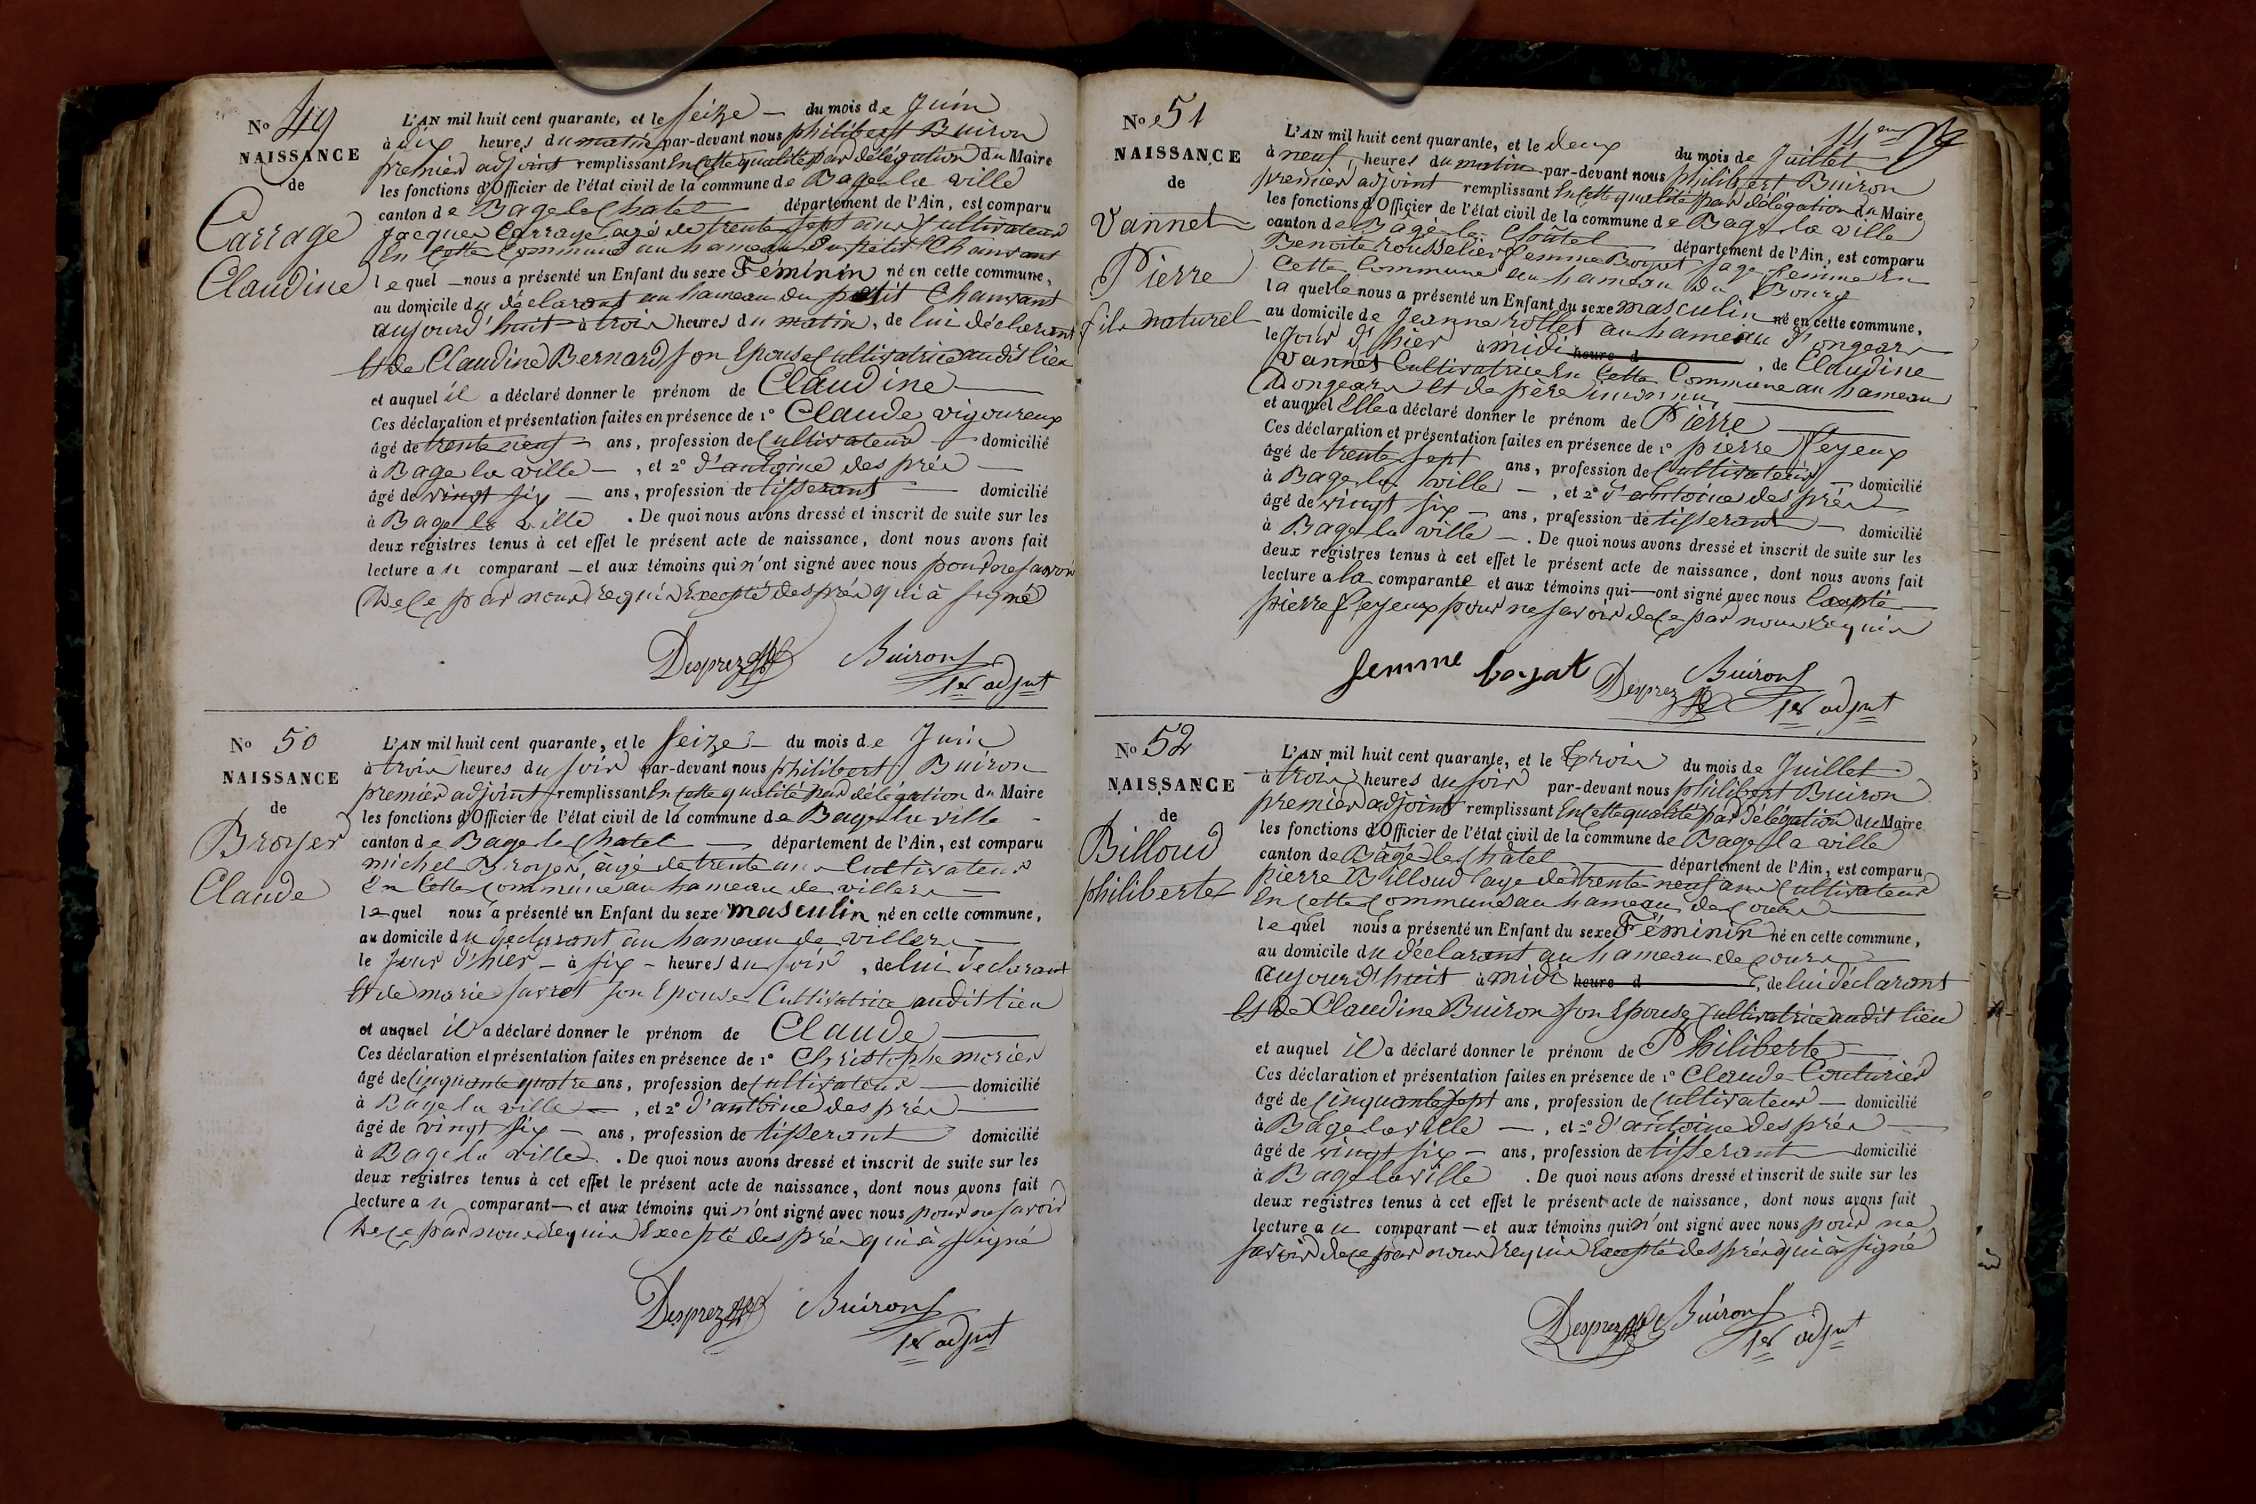 No 49
NAISSANCE
de
Carrage
Claudine
L'AN mil huit cent quarante, et le seize — du mois de Juin
à dix heures du matin par-devant nous philibert Buiron
premier adjoint remplissant En cette qualité par délégation du Maire
les fonctions d'Officier de l'état civil de la commune de Bagé la ville
canton de Bagé le Chatel département de l'Ain, est comparu
Jacques Carrage agé de trente sept ans Cultivateur
En cette Commune au hameau du petit Chanvant
le quel — nous a présenté un Enfant du sexe Féminin né en cette commune,
au domicile du déclarant au hameau du petit Chanvant
aujourd'huit à trois heures du matin, de lui déclarant
Et de Claudine Bernard son Epouse Cultivatrice audit lieu
et auquel il a déclaré donner le prénom de Claudine
Ces déclaration et présentation faites en présence de 1° Claude vigoureux
âgé de trente neuf ans, profession de Cultivateur domicilié
à Bagé la ville —, et 2° d'antoine des prés
âgé de vingt six — ans, profession de tisserant domicilié
à Bagé la ville. De quoi nous avons dressé et inscrit de suite sur les
deux registres tenus à cet effet le présent acte de naissance, dont nous avons fait
lecture au comparant — et aux témoins qui n'ont signé avec nous pour ne savoir
De ce par nous requis Excepté des prés qui à signé
Desprez Buiron
1er adjnt
No 50
NAISSANCE
de
Broyer
Claude
L'AN mil huit cent quarante, et le seize — du mois de Juin
à trois heures du soir par-devant nous philibert Buiron
premier adjoint remplissant En cette qualité par délégation du Maire
les fonctions d'Officier de l'état civil de la commune de Bagé la ville
canton de Bagé le Chatel — département de l'Ain, est comparu
michel Broyer, âgé de trente ans Cultivateur
En cette Commune au hameau de villers
le quel nous a présenté un Enfant du sexe masculin né en cette commune,
au domicile du déclarant au hameau de villers
le Jour d'hier — à six — heures du soir, de lui déclarant
Et de marie son Epouse Cultivatrice audit lieu
et auquel il a déclaré donner le prénom de Claude
Ces déclaration et présentation faites en présence de 1° Christophe morier
âgé de Cinquante quatre ans, profession de Cultivateur — domicilié
à Bagé la ville —, et 2° d'antoine des prés
âgé de vingt six — ans, profession de tisserant domicilié
à Bagé la ville. De quoi nous avons dressé et inscrit de suite sur les
deux registres tenus à cet effet le présent acte de naissance, dont nous avons fait
lecture au comparant — et aux témoins qui n'ont signé avec nous pour ne savoir
De ce par nous requis Excepté des prés qui à signé
Desprez Buiron
1er adjnt
No 51
NAISSANCE
de
Vannet
Pierre
fils naturel
14em
L'AN mil huit cent quarante, et le deux du mois de Juillet
à neuf heures du matin par-devant nous philibert Buiron
premier adjoint remplissant En cette qualité par délégation du Maire
les fonctions d'Officier de l'état civil de la commune de Bagé la ville
canton de Bagé le Châtel département de l'Ain, est comparu
Benoite rousselier femme Boyat sage femme En
Cette Commune au hameau du Bourg
la quelle nous a présenté un Enfant du sexe masculin né en cette commune,
au domicile de Jeanne rollet au hameau d'ongears
le Jour d'hier à midi heure d, de Claudine
Vannet Cultivatrice En Cette Commune au hameau
Dongears Et de père inconnu
et auquel Elle a déclaré donner le prénom de Pierre
Ces déclaration et présentation faites en présence de 1° pierre feyeux
âgé de trente sept ans, profession de Cultivateur — domicilié
à Bagé la ville —, et 2° d'antoine des prés
âgé de vingt six — ans, profession de tisserant — domicilié
à Bagé la ville —. De quoi nous avons dressé et inscrit de suite sur les
deux registres tenus à cet effet le présent acte de naissance, dont nous avons fait
lecture a la comparante et aux témoins qui — ont signé avec nous Excepté
pierre feyeux pour ne savoir de ce par nous requis
femme boyat Desprez Buiron
1er adjnt
No 52
NAISSANCE
de
Billoud
philiberte
L'AN mil huit cent quarante, et le trois du mois de Juillet
à trois heures du soir par-devant nous philibert Buiron
premier adjoint remplissant En cette qualité par délégation du Maire
les fonctions d'Officier de l'état civil de la commune de Bagé la ville
canton de Bagé le Châtel département de l'Ain, est comparu
pierre Billoud âgé de trente neuf ans Cultivateur
En cette Commune au hameau de cours
le quel nous a présenté un Enfant du sexe Féminin né en cette commune,
au domicile du déclarant au hameau de cours
aujourd'huit à midi heure d, de lui déclarant
Et de Claudine Buiron son Epouse Cultivatrice audit lieu
et auquel il a déclaré donner le prénom de Philiberte
Ces déclaration et présentation faites en présence de 1° Claude Couturier
âgé de Cinquante sept ans, profession de Cultivateur — domicilié
à Bagé la ville —, et 2° d'antoine des prés
âgé de vingt six — ans, profession de tisserant domicilié
à Bagé la ville. De quoi nous avons dressé et inscrit de suite sur les
deux registres tenus à cet effet le présent acte de naissance, dont nous avons fait
lecture au comparant — et aux témoins qui n'ont signé avec nous pour ne
savoir de ce par nous requis Excepté des prés qui à signé
Desprez Buiron
1er adjnt